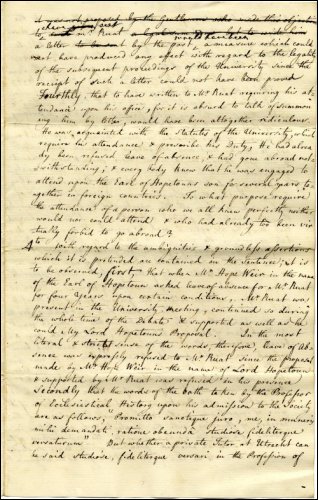 it was not required by the Gentlemen who made this objection
to Mr Ruat
a letter to be sent by the post, a measure which could
not have produced any effect with regard to the legality
of the subsequent proceedings of the University since the
receipt of such a letter could not have been proved
Fourthly, that to have written to Mr Ruat requiring his at-
tendance upon his office, for it is absurd to talk of summon
ing him by Letter, would have been altogether ridiculous
He was acquainted with the Statutes of the University, which
require his attendance & prescribe his Duty; He had alrea
dy been refused leave of absence, & had gone abroad not
withstanding; & every body knew that he was engaged to
attend upon the Earl of Hopetouns son for several years to-
gether in foreign countries. To what purpose require
the attendance of a person who we all knew perfectly neither
would nor could attend & who had already been vir
tually forbid to go abroad?
4to With regard to the ambiguities & groundless assertions
which it is pretended are contained in the Sentence, it is
to be observed, first, that when Mr Hope Weir in the name
of the Earl of Hopetoun asked leave of absence for Mr Ruat
for four Years upon certain conditions, Mr Ruat was
present in the University Meeting, continued so during
the whole time of the Debate & supported as well as he
could My Lord Hopetouns Proposal. In the most
literal & strict sense of the words, therefore, leave of Ab-
sence was expressly refused to Mr Ruat since the proposal
made by Mr Hope Weir in the name of Lord Hopetoun
& supported by Mr Ruat was refused in his presence
Secondly that the words of the oath taken by the Professor
of Ecclesiastical History upon his admission to the Society
are as follows, "Promitto sancteque juro, me, in munere
mihi demandato, ratione obeunda studiose fideliterque
versaturum" But whether a private Tutor at Utrecht can
be said studiose, fideliterque versari in the Profession of